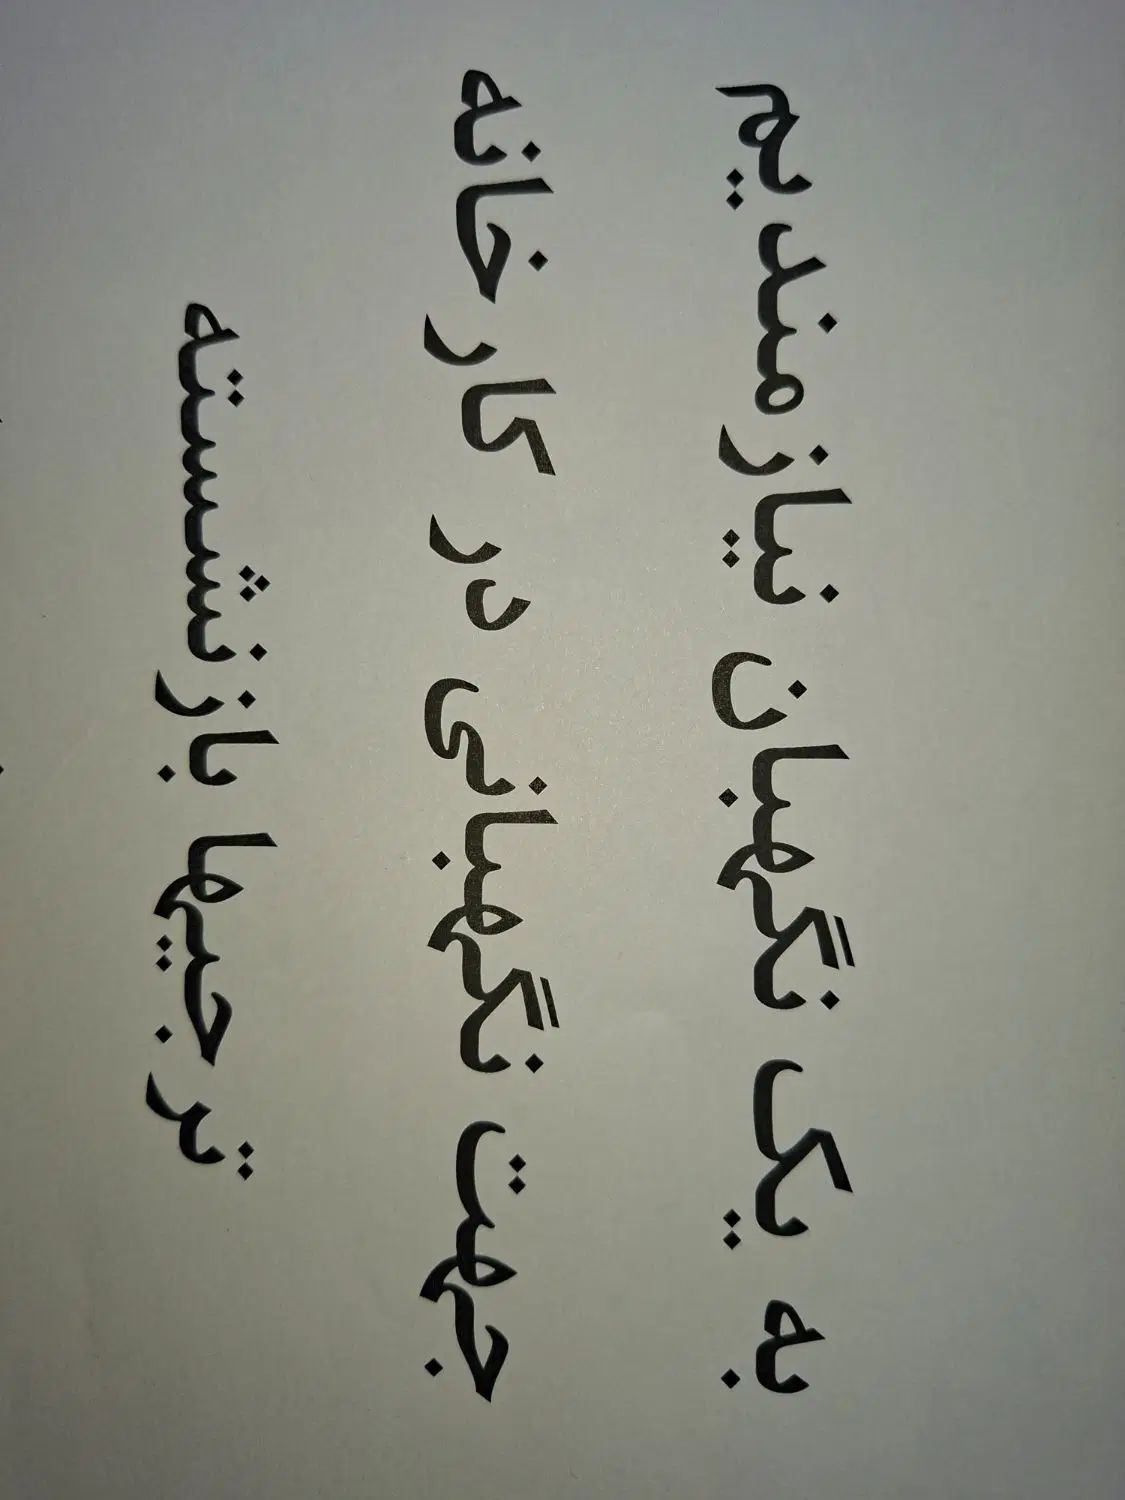 به یک نگهبان نیازمندیم
جهت نگهبانی در کارخانه
ترجیها بازنشسته